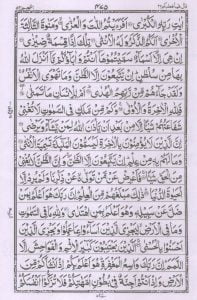 قال فما خطبكم ٢٧ ۴۷۵ النجم ٥٣
اٰيٰتِ رَبِّهِ الْكُبْرٰى ۝ اَفَرَءَيْتُمُ اللّٰتَ وَالْعُزّٰى ۝ وَمَنٰوةَ الثَّالِثَةَ
الْاُخْرٰى ۝ اَلَكُمُ الذَّكَرُ وَلَهُ الْاُنْثٰى ۝ تِلْكَ اِذًا قِسْمَةٌ ضِيْزٰى ۝
اِنْ هِيَ اِلَّاۤ اَسْمَآءٌ سَمَّيْتُمُوْهَاۤ اَنْتُمْ وَاٰبَآؤُكُمْ مَّاۤ اَنْزَلَ اللّٰهُ
بِهَا مِنْ سُلْطٰنٍ ؕ اِنْ يَّتَّبِعُوْنَ اِلَّا الظَّنَّ وَمَا تَهْوَى الْاَنْفُسُ ۚ
وَلَقَدْ جَآءَهُمْ مِّنْ رَّبِّهِمُ الْهُدٰى ۝ اَمْ لِلْاِنْسَانِ مَا تَمَنّٰى ۝
فَلِلّٰهِ الْاٰخِرَةُ وَالْاُوْلٰى ۝ وَكَمْ مِّنْ مَّلَكٍ فِي السَّمٰوٰتِ لَا تُغْنِيْ
شَفَاعَتُهُمْ شَيْئًا اِلَّا مِنْۢ بَعْدِ اَنْ يَّاْذَنَ اللّٰهُ لِمَنْ يَّشَآءُ وَيَرْضٰى ۝
اِنَّ الَّذِيْنَ لَا يُؤْمِنُوْنَ بِالْاٰخِرَةِ لَيُسَمُّوْنَ الْمَلٰٓئِكَةَ تَسْمِيَةَ الْاُنْثٰى ۝
وَمَا لَهُمْ بِهٖ مِنْ عِلْمٍ ؕ اِنْ يَّتَّبِعُوْنَ اِلَّا الظَّنَّ ۚ وَاِنَّ الظَّنَّ لَا يُغْنِيْ
مِنَ الْحَقِّ شَيْئًا ۝ فَاَعْرِضْ عَنْ مَّنْ تَوَلّٰى عَنْ ذِكْرِنَا وَلَمْ يُرِدْ اِلَّا
الْحَيٰوةَ الدُّنْيَا ۝ ذٰلِكَ مَبْلَغُهُمْ مِّنَ الْعِلْمِ ؕ اِنَّ رَبَّكَ هُوَ اَعْلَمُ بِمَنْ
ضَلَّ عَنْ سَبِيْلِهٖ وَهُوَ اَعْلَمُ بِمَنِ اهْتَدٰى ۝ وَلِلّٰهِ مَا فِي السَّمٰوٰتِ
وَمَا فِي الْاَرْضِ لِيَجْزِيَ الَّذِيْنَ اَسَآءُوْا بِمَا عَمِلُوْا وَيَجْزِيَ الَّذِيْنَ
اَحْسَنُوْا بِالْحُسْنٰى ۝ اَلَّذِيْنَ يَجْتَنِبُوْنَ كَبٰٓئِرَ الْاِثْمِ وَالْفَوَاحِشَ اِلَّا
اللَّمَمَ ؕ اِنَّ رَبَّكَ وَاسِعُ الْمَغْفِرَةِ ؕ هُوَ اَعْلَمُ بِكُمْ اِذْ اَنْشَاَكُمْ مِّنَ
الْاَرْضِ وَاِذْ اَنْتُمْ اَجِنَّةٌ فِيْ بُطُوْنِ اُمَّهٰتِكُمْ ۚ فَلَا تُزَكُّوْۤا اَنْفُسَكُمْ